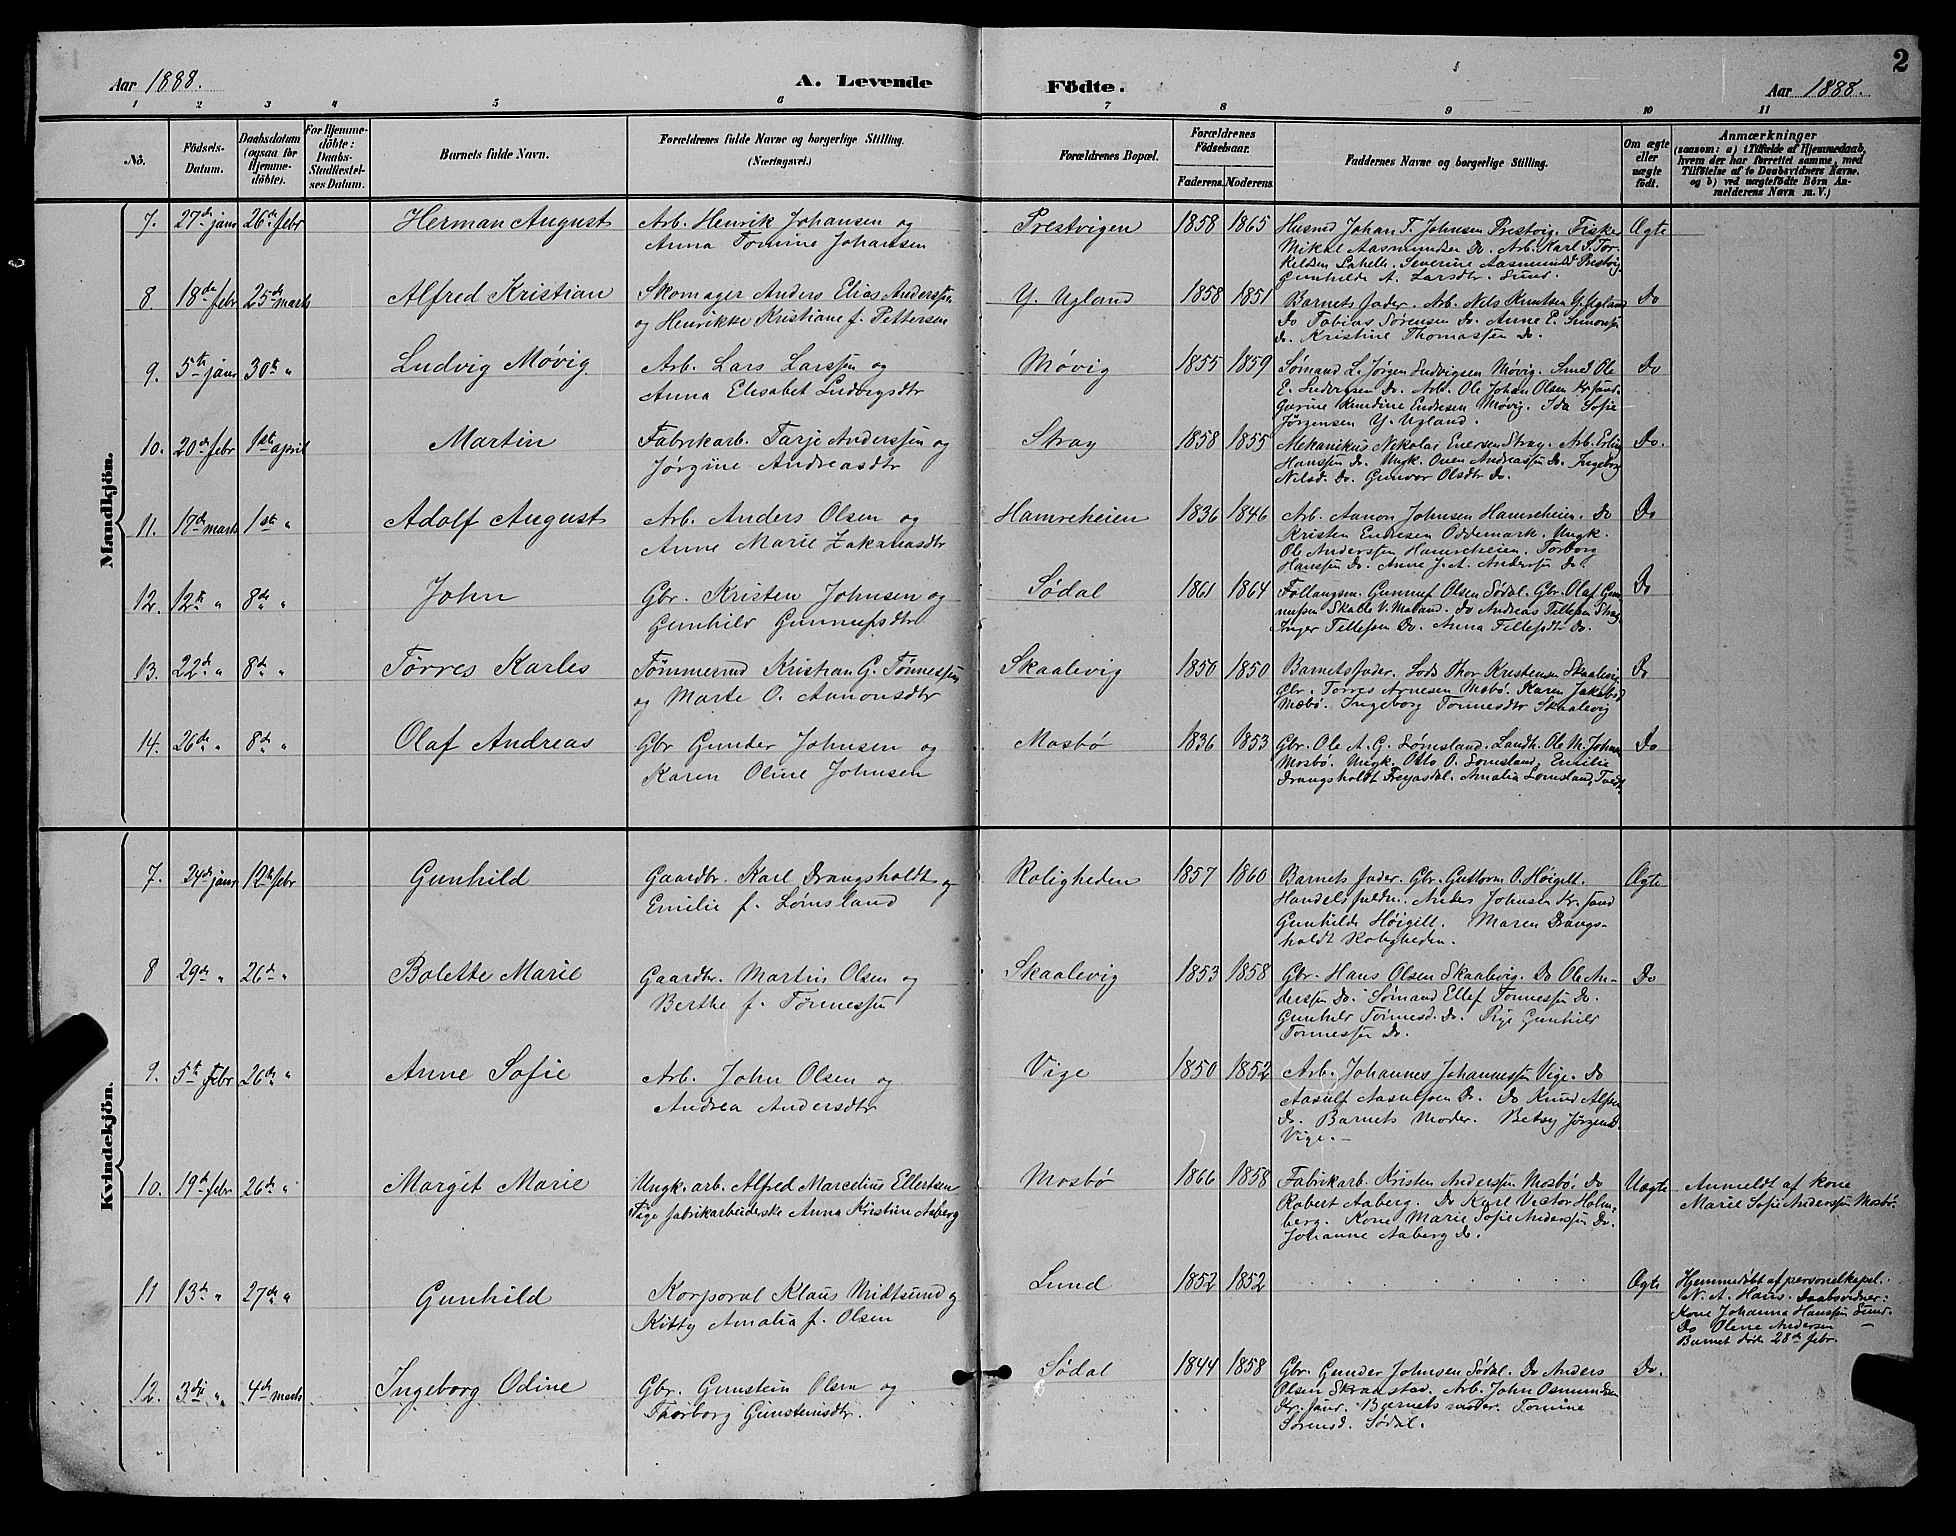 2
Aar 1888. A. Levende Födte. Aar 1888.
1 2 3 4 5 6 7 8 9 10 11
No. Födsels-Datum. Daabsdatum (ogsaa for Hjemmedöbte). For Hjemmedöbte: Daabs-Stadfæstelses Datum. Barnets fulde Navn. Forældrenes fulde Navne og borgerlige Stilling. (Næringsvei.) Forældrenes Bopæl. Forældrenes Födselsaar. Faderens. Moderens. Faddernes Navne og borgerlige Stilling. Om ægte eller uægte födt. Anmærkninger (saasom: a) i Tilfælde af Hjemmedaab, hvem der har forrettet samme, med Tilföielse af to Daabsvidners Navne. og b) ved uægtefödte Börn Anmelderens Navn m. V.)
Mandkjön.
7. 27de janr 26de febr Herman August Arb. Henrik Johansen og Prestvigen 1858 1865 Husmd Johan T. Johnsen Prestvig. Fisker Ægte
Anna Tomine Johansen Mikal Aasmundsen Do. Arb. Karl S. Tor-
keldsen Lahelle. Severine Aasmundsd Prestvig
Gunhilde A. Larsdtr. Lund.
8. 18de febr 25de marts Alfred Kristian Skomager Anders Elias Anderssen Y. Ugland 1858 1851 Barnets fader. Arb. Nils Knutsen Y. Ugland Do
og Henrikke Kristiane f. Pettersen Do Tobias Sörensen Do. Anne E. Simonsen
do. Kristine Thomassen Do.
9. 5te janr 30te " Ludvig Møvig Arb. Lars Larssen og Møvig 1855 1859 Sømand L. Jørgen Ludvigsen Møvig. Smed Ole Do
Anna Elisabet Ludvigsdtr E. Ludvigsen Do. Arb. Ole Johan Olsen Kr.sand.
Gurine Kundine Endresen Møvig. Ida Sofie
Jørgensen Y. Ugland.
10. 20de febr 1ste april Martin Fabrikarb. Tarje Anderssen og Stray 1858 1855 Mekanikus Nikolai Enersen Stray. Arb. Erling Do.
Jørgine Andreasdtr Hanssen Do. Ungk. Oven Andreassen Do. Ingeborg
Nilsd. Do. Gunvor Olsdtr Do.
11. 17de marts 1ste " Adolf August Arb. Anders Olsen og Hamreheien 1836 1846 Arb. Aanon Johnsen Hamreheien. Do Do
Anne Marie Zakariasdtr Kristen Endresen Oddemark. Ungk.
Ole Anderssen Hamreheien. Torborg
Hanssen Do. Anne J. A. Andersen Do.
12. 12te " 8de " John Gbr. Kristen Johnsen og Södal 1861 1864 Follaugsm. Gunnuf Olsen Södal. Gbr. Olaf Gun Do
Gunhild Gunnufsdtr nufsen Skalle V. Moland. Do Andreas Tellefsen Stray
Inger Tellefsen Do. Anna Tellefsdtr Do.
13. 22de " 8de " Tørres Karles Tømmermd Kristian G. Tønnessen Skaalevig 1850 1850 Barnets fader. Lods Thor Kristensen Skaalevig Do
og Marte O. Aanonsdtr Gbr. Torres Arnesen Mebö. Karen Jakobsd
Mebö. Ingeborg Tønnesdtr Skaalevig
14. 26de " 8de " Olaf Andreas Gbr Gunder Johnsen og Mosbø 1836 1853 Gbr. Ole A. G. Lømsland. Landh. Ole M. Johnsen Do
Karen Oline Johnsen Mosbø. Ungk. Otto O. Lomsland, Emilie
Drangsholdt Freyasdal. Amalia Lomsland, Tvedt.
Kvindekjön.
7. 24de janr 12te febr Gunhild Gaardbr. Karl Drangsholdt og Roligheden 1857 1860 Barnets fader. Gbr. Guttorm O. Höigilt. Ægte
Emilie f. Lømsland Handelsfuldm. Anders Johnsen Kr.sand
Gunhilde Höigilt. Maren Drangs-
holdt Roligheden.
8 29de " 26de " Bolette Marie Gaardbr. Martin Olsen og Skaalevig 1853 1858 Gbr. Hans Olsen Skaalevig. Do Ole An- Do
Berthe f. Tønnessen derssen Do. Sømand Ellef Tonnessen Do.
Gunhild Tönnesd. Do. Pige Gunhild
Tonnessen Do.
9. 5te febr 26de " Anne Sofie Arb. John Olsen og Vige 1850 1852 Arb. Johannes Johannessen Vige. Do
Andrea Andersdtr Aasulf Aasulfsen Do. Do Knud Alfsen
Do. Barnets Moder. Betsy Jørgensd.
Vige.-
10. 19de febr 26de " Margit Marie Ungk. arb. Alfred Marcelius Ellertsen Mosbø 1866 1858 Fabrikarb. Kristen Anderssen Mosbø. Do Uægte Anmeldt af kone
Pige fabrikarbeiderske Anna Kristine Aaberg Robert Aaberg. Do Karl Victor Holm- Marie Sofie Anderssen Mosbø.
berg. Kone Marie Sofie Anderssen Do.
Johanne Aaberg Do.
11 13de " 27de " Gunhild Korporal Klaus Midtsund og Lund 1852 1852 Ægte Hjemmedøbt af personelkapel.
Kitty Amalia f. Olsen N. A. Hans. Daabsvidner:
Kone Johanna Hanssen Lund
Do Oline Andersen
Barnet døde 28de febr.
12. 3die " 4de marts Ingeborg Odine Gbr. Gunstein Olsen og Södal 1844 1858 Gbr. Gunder Johnsen Södal. Do Anders Do.
Thorborg Gunsteinsdtr. Olsen Straastad. Arb. John Osmundsen
Kr.sand. Barnets moder. Tomine
Sørensd. Södal.